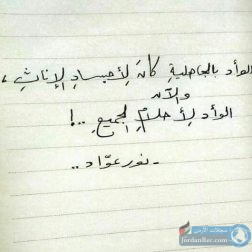 الوأد بالجاهليةِ كانَ لِأجسادِ الإناثِ ،
والآن
الوأد لِأحلامِ الجميعِ ..!
- نور عوّاد ..
سجلات الأردن
JordanRec.com